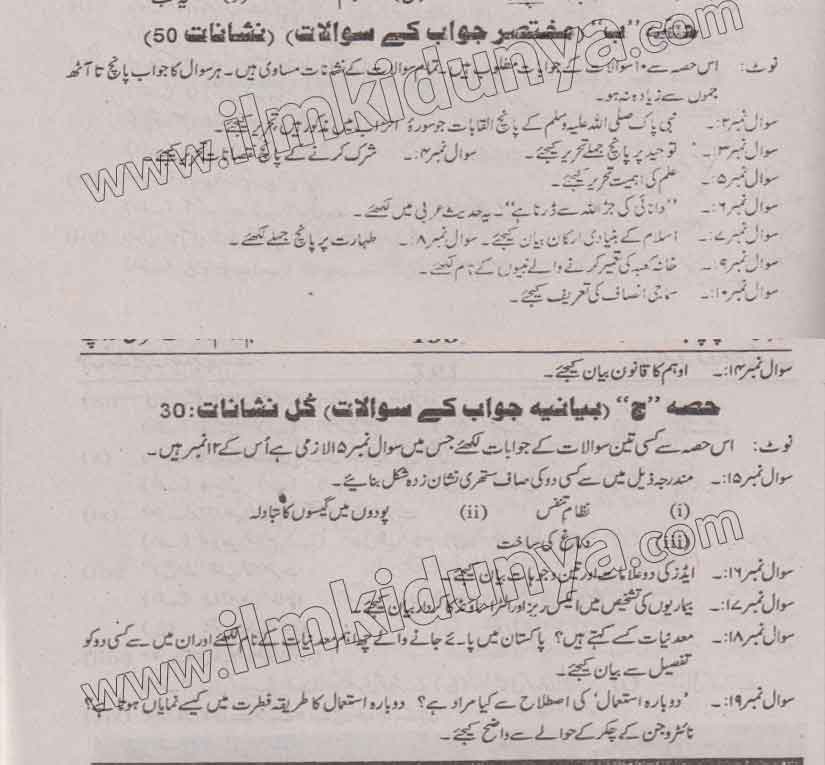 حصہ "ب" (مختصر جواب کے سوالات) (نشانات 50)
نوٹ: اس حصہ سے ۱۰ سوالات کے جوابات مطلوب ہیں۔ تمام سوالات کے نشانات مساوی ہیں۔ ہر سوال کا جواب پانچ تا آٹھ
جملوں سے زیادہ نہ ہو۔
سوال نمبر۲:۔ نبی پاک صلی اللہ علیہ وسلم کے پانچ القابات جو سورۂ احزاب میں مذکور ہیں تحریر کیجئے۔
سوال نمبر۳:۔ توحید پر پانچ جملے تحریر کیجئے۔ سوال نمبر۴:۔ شرک کرنے کے پانچ نقصانات تحریر کیجئے۔
سوال نمبر۵:۔ علم کی اہمیت تحریر کیجئے۔
سوال نمبر۶:۔ "دانائی کی جڑ اللہ سے ڈرنا ہے"۔ یہ حدیث عربی میں لکھئے۔
سوال نمبر۷:۔ اسلام کے بنیادی ارکان بیان کیجئے۔ سوال نمبر۸:۔ طہارت پر پانچ جملے لکھئے۔
سوال نمبر۹:۔ خانہ کعبہ کی تعمیر کرنے والے نبیوں کے نام لکھئے۔
سوال نمبر۱۰:۔ سماجی انصاف کی تعریف کیجئے۔
سوال نمبر۱۴:۔ اوہم کا قانون بیان کیجئے۔
حصہ "ج" (بیانیہ جواب کے سوالات) کُل نشانات: 30
نوٹ: اس حصہ سے کسی تین سوالات کے جوابات لکھئے جس میں سوال نمبر ۱۵ لازمی ہے اُس کے ۱۲ نمبر ہیں۔
سوال نمبر۱۵:۔ مندرجہ ذیل میں سے کسی دو کی صاف ستھری نشان زدہ شکل بنائیے۔
(i) نظامِ تنفس (ii) پودوں میں گیسوں کا تبادلہ
(iii) دماغ کی ساخت
سوال نمبر۱۶:۔ ایڈز کی دو علامات اور تین وجوہات بیان کیجئے۔
سوال نمبر۱۷:۔ بیماریوں کی تشخیص میں ایکس ریز اور الٹراساؤنڈ کا کردار بیان کیجئے۔
سوال نمبر۱۸:۔ معدنیات کسے کہتے ہیں؟ پاکستان میں پائے جانے والے چھ اہم معدنیات کے نام لکھئے اور ان میں سے کسی دو کو
تفصیل سے بیان کیجئے۔
سوال نمبر۱۹:۔ 'دوبارہ استعمال' کی اصطلاح سے کیا مراد ہے؟ دوبارہ استعمال کا طریقہ فطرت میں کیسے نمایاں ہوتا ہے؟
نائٹروجن کے چکر کے حوالے سے واضح کیجئے۔
www.ilmkidunya.com
www.ilmkidunya.com